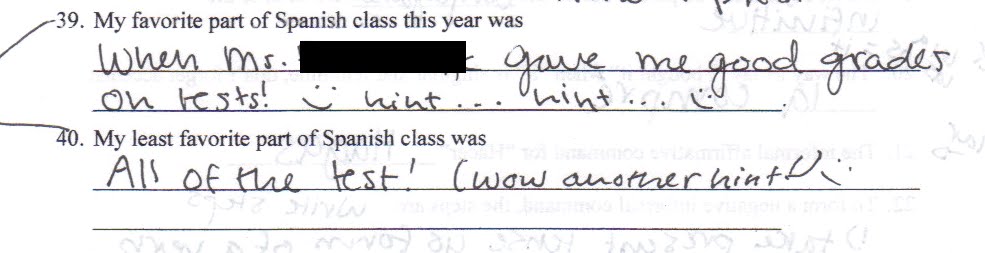 39. My favorite part of Spanish class this year was
When Ms. gave me good grades
on tests! hint... hint...
40. My least favorite part of Spanish class was
All of the test! (wow another hint!)